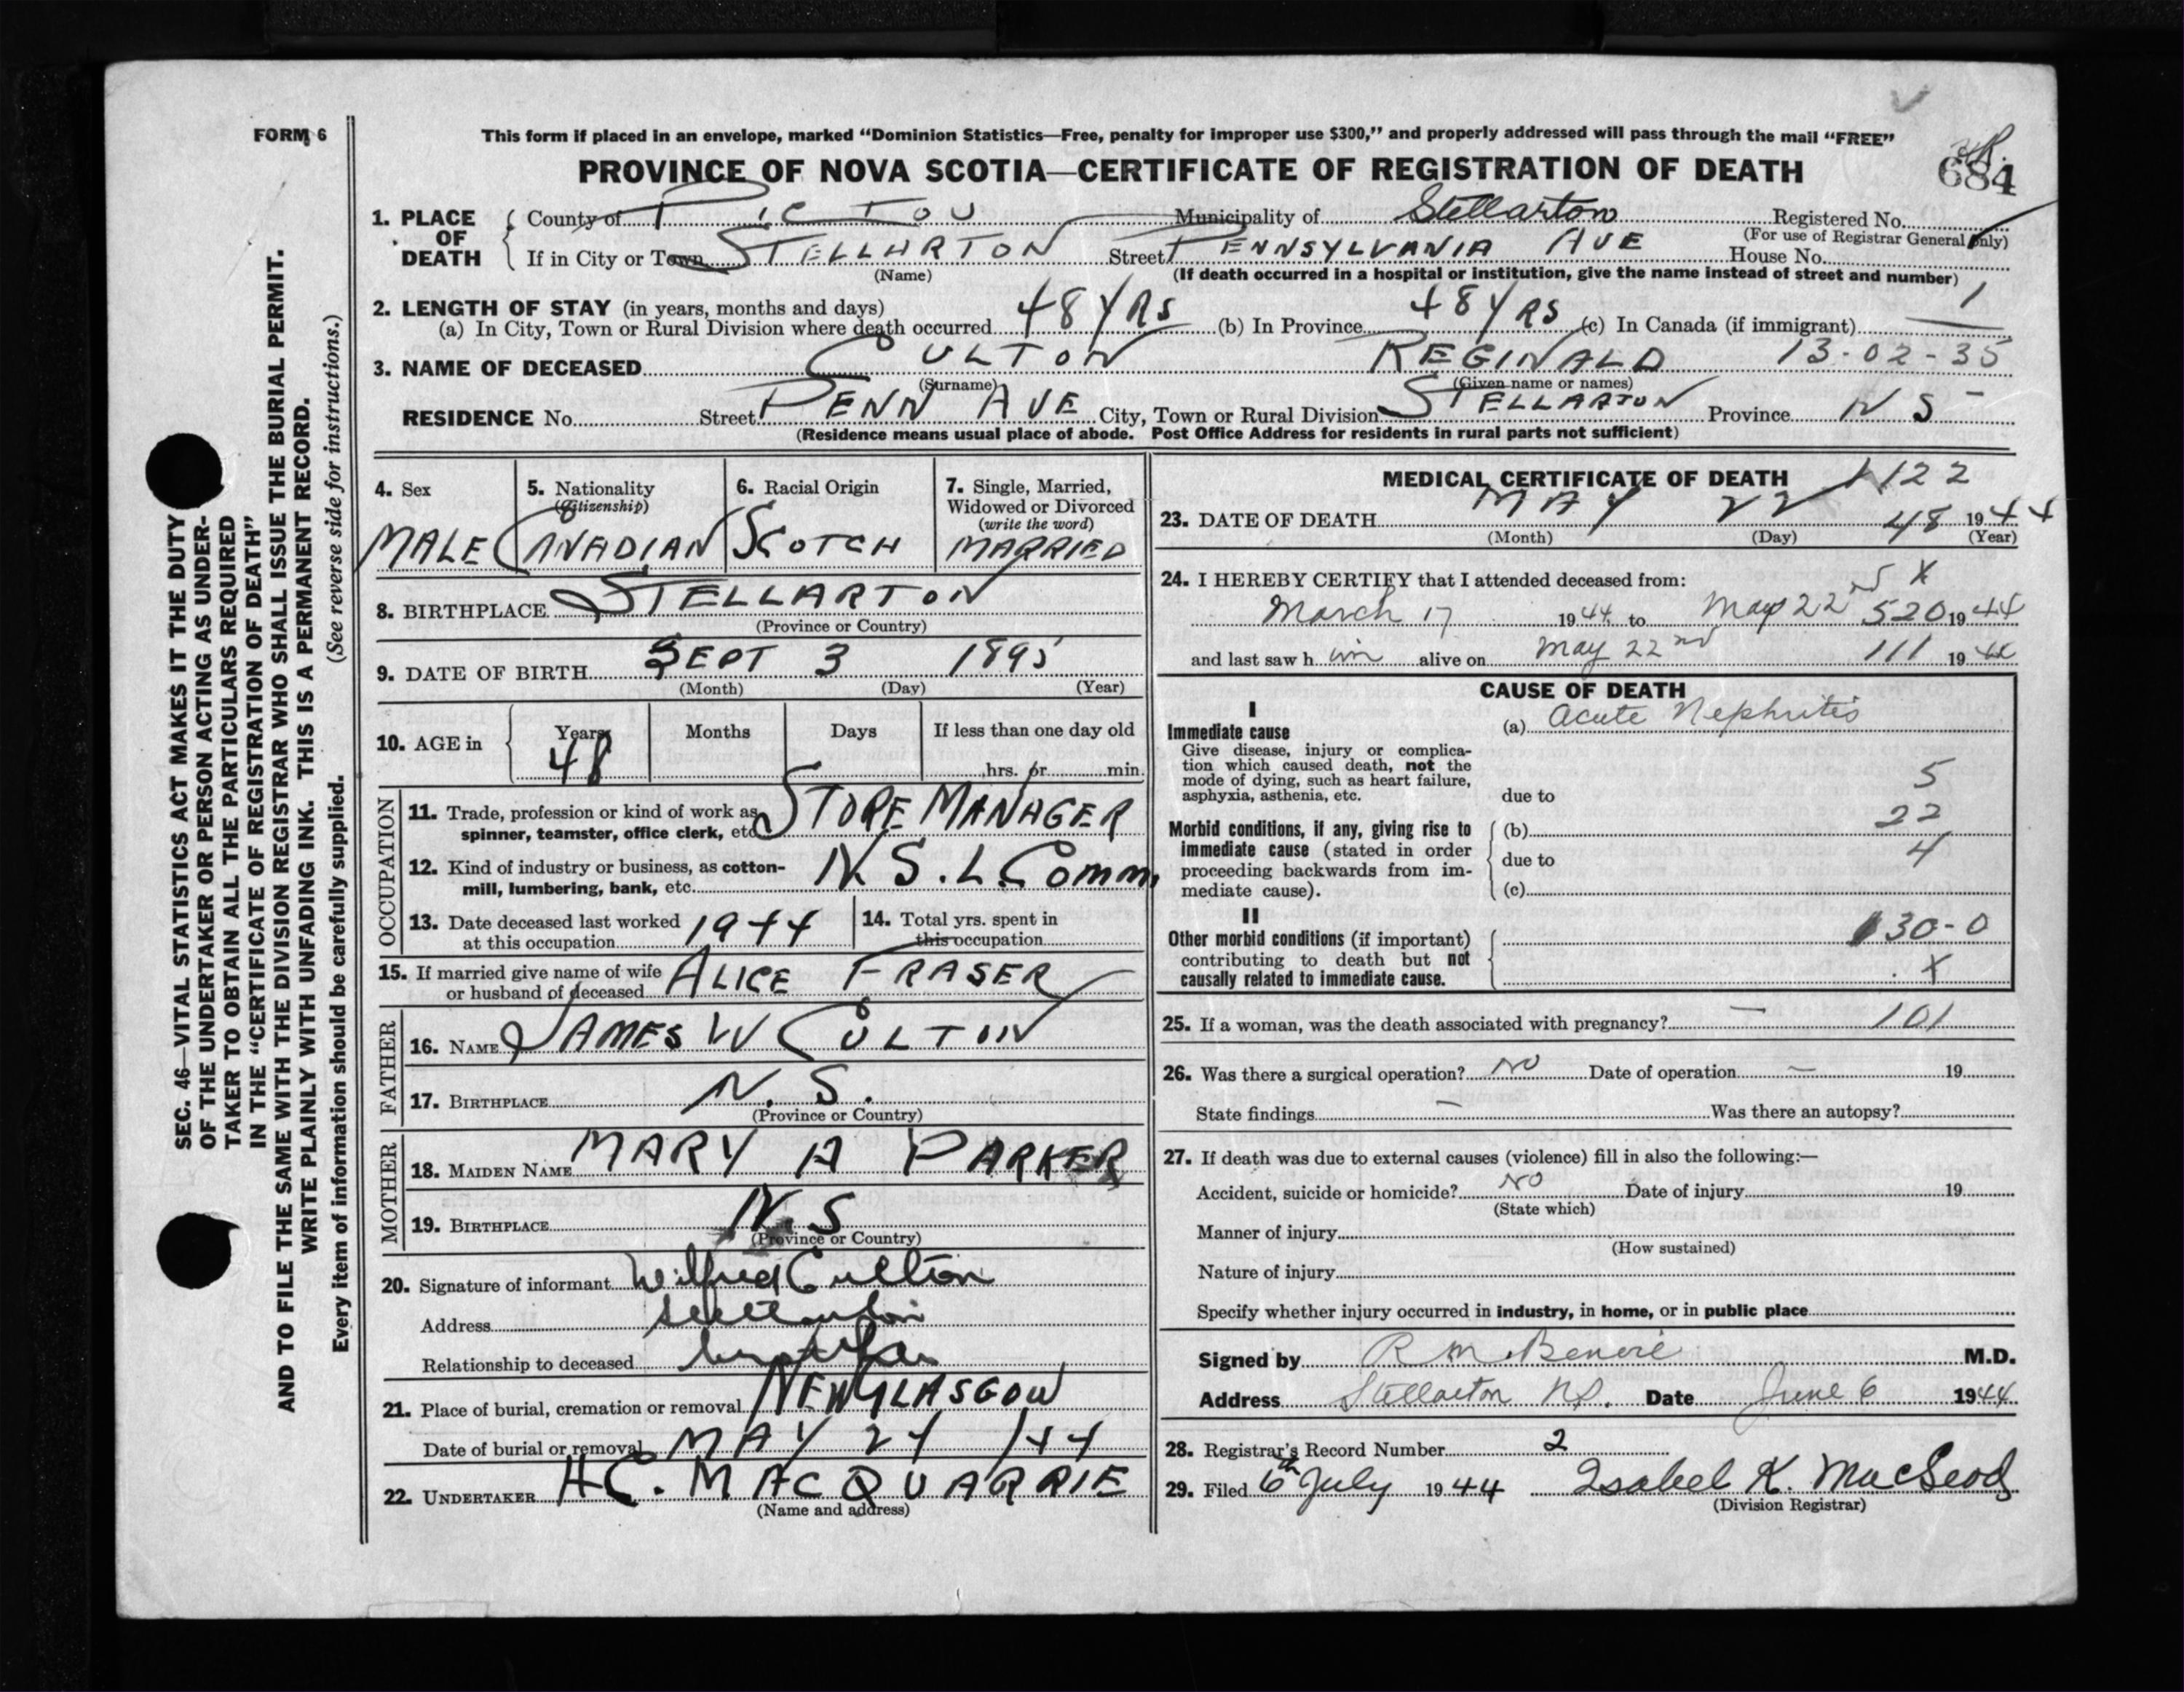 FORM 6
This form if placed in an envelope, marked "Dominion Statistics—Free, penalty for improper use $300," and properly addressed will pass through the mail "FREE"
PROVINCE OF NOVA SCOTIA—CERTIFICATE OF REGISTRATION OF DEATH
684
1. PLACE OF DEATH { County of PICTOU Municipality of Stellarton Registered No.
(For use of Registrar General only)
If in City or Town STELLARTON Street PENNSYLVANIA AVE House No.
(Name) (If death occurred in a hospital or institution, give the name instead of street and number)
2. LENGTH OF STAY (in years, months and days) 1
(a) In City, Town or Rural Division where death occurred 48 YRS (b) In Province 48 YRS (c) In Canada (if immigrant) —
3. NAME OF DECEASED CULTON REGINALD 13-02-35
(Surname) (Given name or names)
RESIDENCE No. Street PENN AVE City, Town or Rural Division STELLARTON Province N S
(Residence means usual place of abode. Post Office Address for residents in rural parts not sufficient)
4. Sex MALE
5. Nationality (Citizenship) CANADIAN
6. Racial Origin SCOTCH
7. Single, Married, Widowed or Divorced (write the word) MARRIED
8. BIRTHPLACE STELLARTON
(Province or Country)
9. DATE OF BIRTH SEPT 3 1895
(Month) (Day) (Year)
10. AGE in { Years Months Days If less than one day old
48 hrs. or min.
OCCUPATION
11. Trade, profession or kind of work as STORE MANAGER
spinner, teamster, office clerk, etc.
12. Kind of industry or business, as cotton- N S. L. Comm.
mill, lumbering, bank, etc.
13. Date deceased last worked at this occupation 1944
14. Total yrs. spent in this occupation
15. If married give name of wife ALICE FRASER
or husband of deceased
FATHER
16. NAME JAMES W CULTON
17. BIRTHPLACE N. S.
(Province or Country)
MOTHER
18. MAIDEN NAME MARY A PARKER
19. BIRTHPLACE N. S
(Province or Country)
20. Signature of informant Wilfred Culton
Address Stellarton
Relationship to deceased brother
21. Place of burial, cremation or removal NEW GLASGOW
Date of burial or removal MAY 24 /44
22. UNDERTAKER H C. MACQUARRIE
(Name and address)
MEDICAL CERTIFICATE OF DEATH 1122
23. DATE OF DEATH MAY 22 48 1944
(Month) (Day) (Year)
24. I HEREBY CERTIFY that I attended deceased from: X
March 17 1944 to May 22nd 520 1944
and last saw him alive on May 22nd 111 1944
CAUSE OF DEATH
I
Immediate cause (a) Acute Nephritis
Give disease, injury or complica-
tion which caused death, not the
mode of dying, such as heart failure, 5
asphyxia, asthenia, etc. due to
22
Morbid conditions, if any, giving rise to (b)
immediate cause (stated in order due to 4
proceeding backwards from im-
mediate cause). (c)
II
Other morbid conditions (if important) 130-0
contributing to death but not
causally related to immediate cause. X
25. If a woman, was the death associated with pregnancy? — 101
26. Was there a surgical operation? NO Date of operation — 19
State findings — Was there an autopsy?
27. If death was due to external causes (violence) fill in also the following:—
Accident, suicide or homicide? NO Date of injury 19
(State which)
Manner of injury
(How sustained)
Nature of injury
Specify whether injury occurred in industry, in home, or in public place
Signed by R M. Benvie M.D.
Address Stellarton NS. Date June 6 1944
28. Registrar's Record Number 2
29. Filed 6th July 1944 Isabel K. MacLeod
(Division Registrar)
SEC. 46—VITAL STATISTICS ACT MAKES IT THE DUTY
OF THE UNDERTAKER OR PERSON ACTING AS UNDER-
TAKER TO OBTAIN ALL THE PARTICULARS REQUIRED
IN THE "CERTIFICATE OF REGISTRATION OF DEATH"
AND TO FILE THE SAME WITH THE DIVISION REGISTRAR WHO SHALL ISSUE THE BURIAL PERMIT.
WRITE PLAINLY WITH UNFADING INK. THIS IS A PERMANENT RECORD.
Every item of information should be carefully supplied. (See reverse side for instructions.)